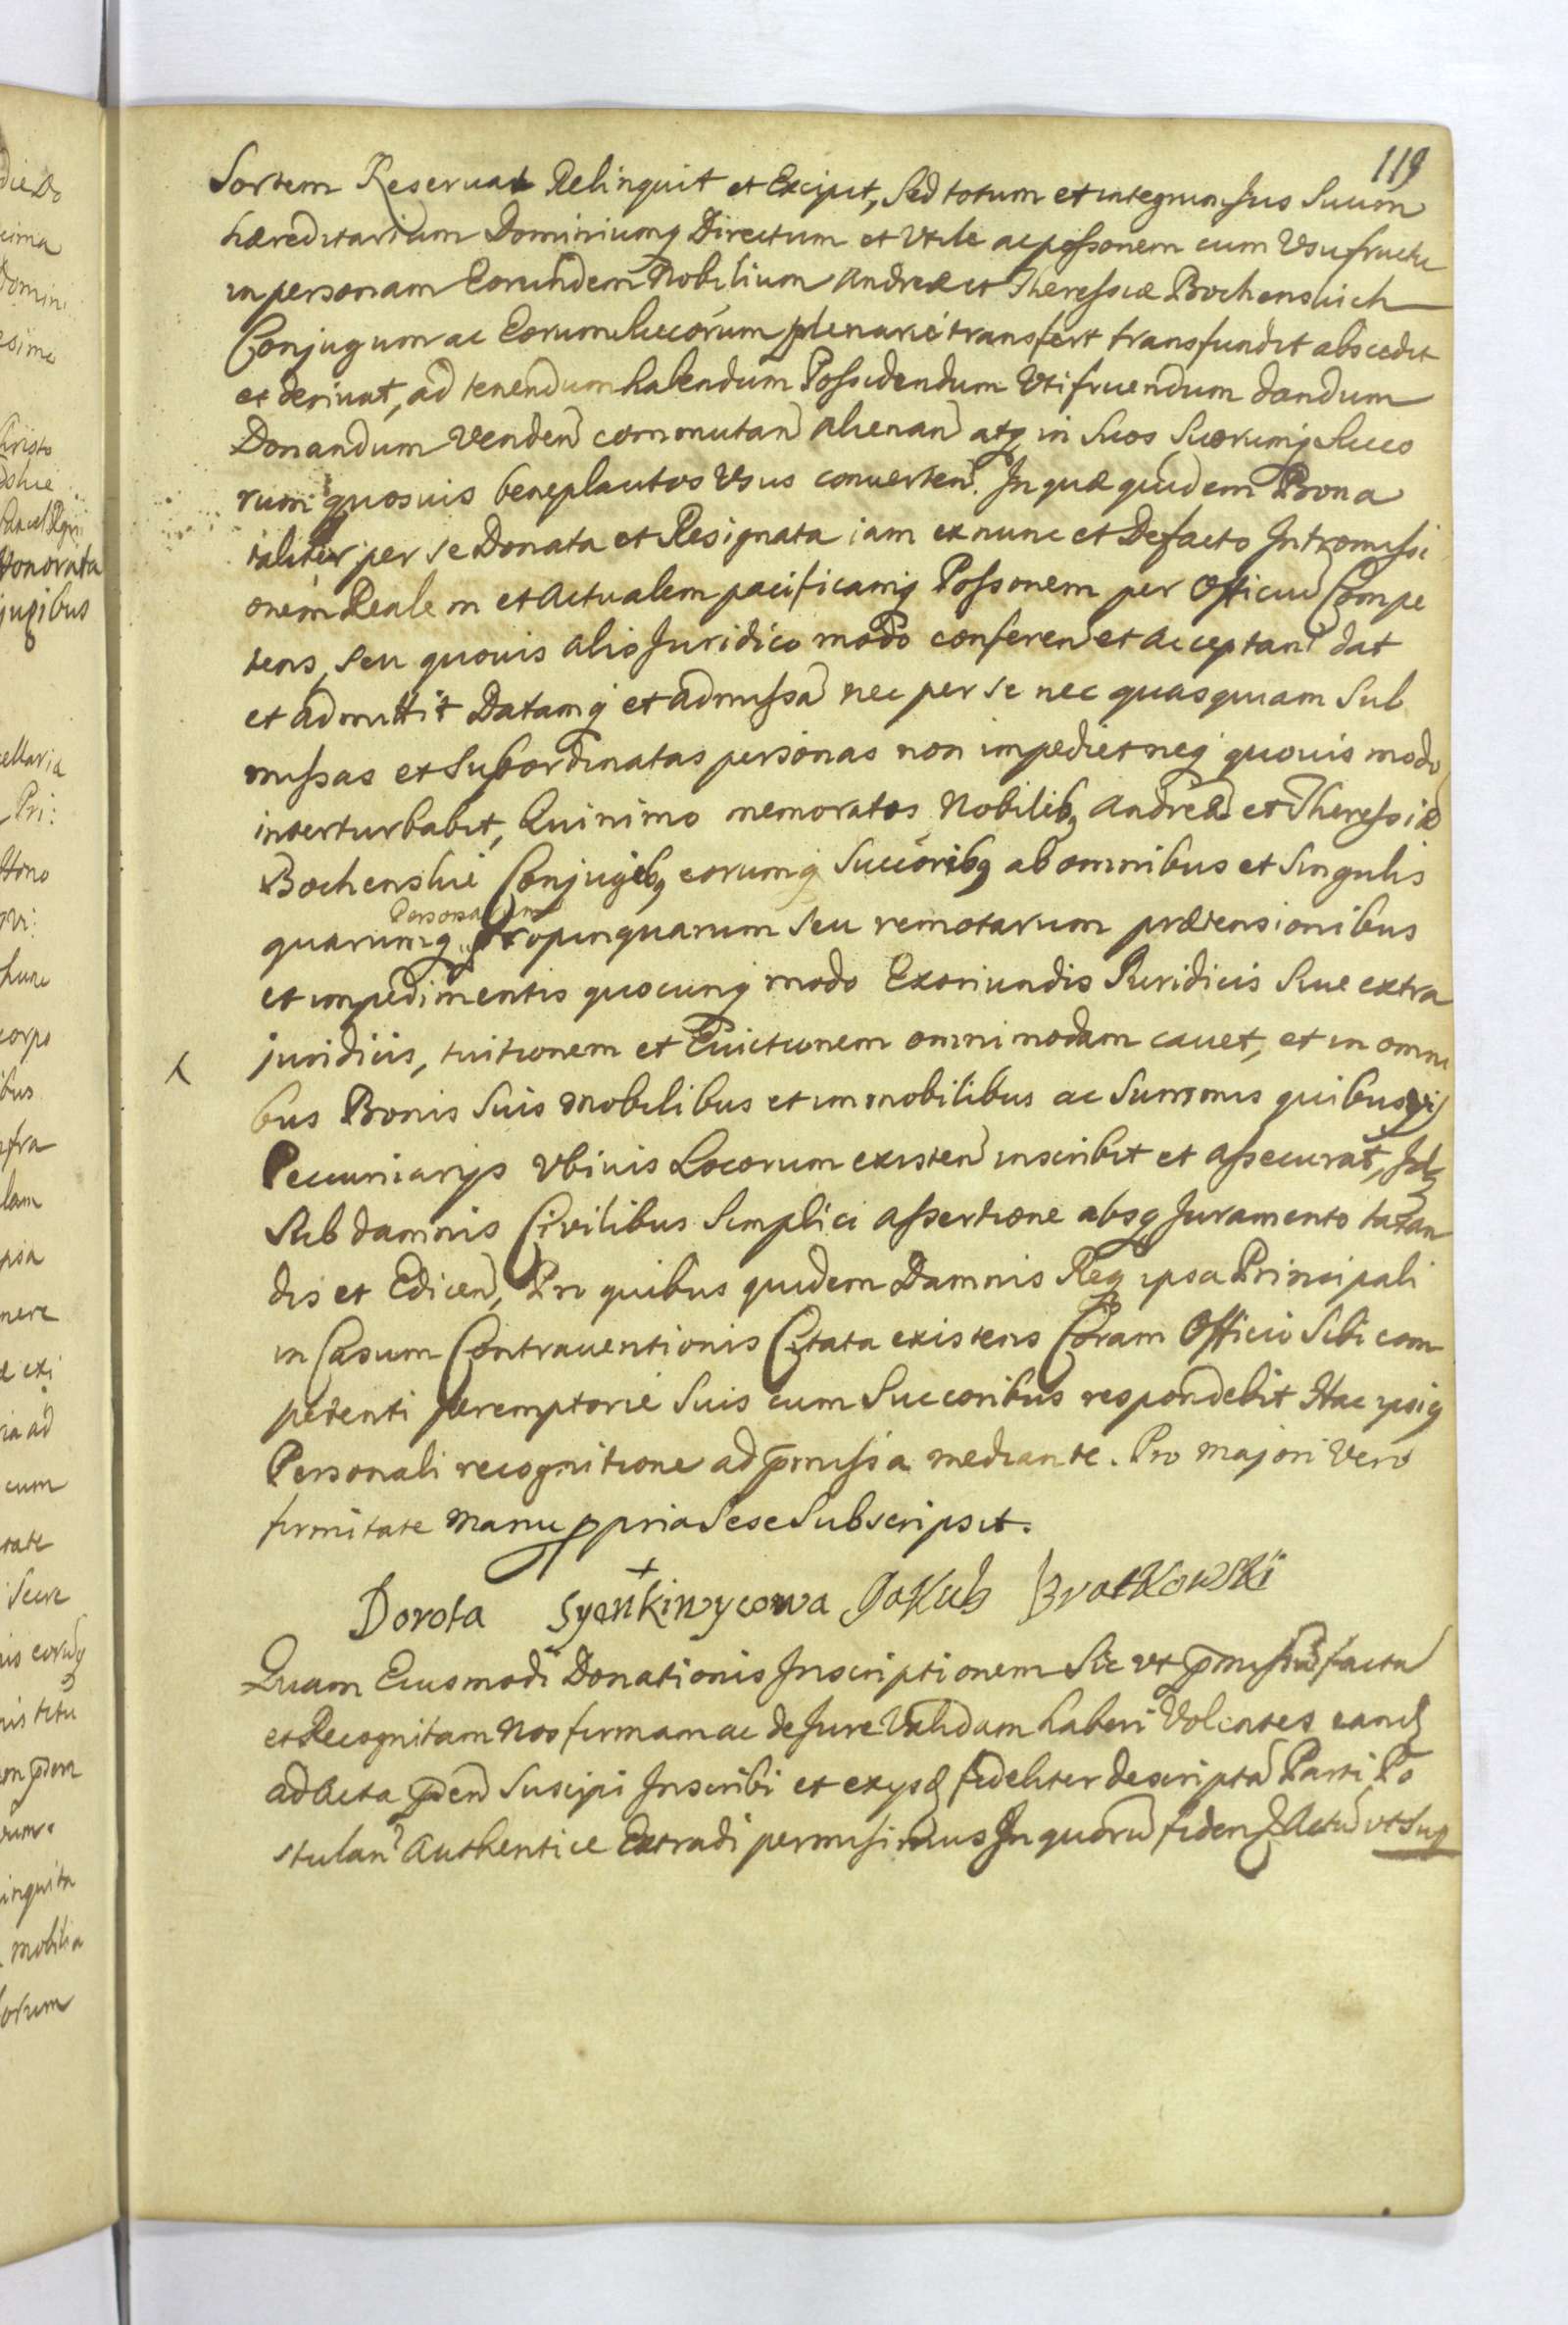 119
Sortem Reseruat Relinquit et Excipit, Sed totum et integrum Jus Suum
hæreditarium Dominiumq Directum et Vtile ac possonem cum Vsufructu
in personam Eorundem Nobilium Andreæ et Theressiæ Bochenskich
Conjugum ac Eorum Succorum plenarie transfert transfundit abscedit
et deriuat, ad tenendum habendum Possidendum Vtifruendum dandum
Donandum Venden commutan alienan atq in Suos Suorumq Succo
rum quosuis beneplacitos Vsus conuerten. In quæ quidem Bona
taliter per se Donata et Resignata iam ex nunc et Defacto Intromissi
onem Realem et Actualem pacificamq Possonem per Officiu Compe
tens, seu quouis alio Juridico modo conferen et acceptan dat
et admittit Datamq et admissa nec per se nec quasquam Sub
missas et Subordinatas personas non impediet neq quouis modo
interturbabit, Quinimo memoratos Nobilibq Andreæ et Theressiæ
Bochenskie Conjugibq eorumq Succoribq ab omnibus et Singulis
Personarum
quarumq propinquarum seu remotarum prætensionibus
et impedimentis quocunq modo Exoriundis Juridicis Siue extra
juridicis, tuitionem et Euictionem omnimodam cauet, et in omni
bus Bonis Suis Mobilibus et immobilibus ac Summis quibusvis
Pecuniarijs Vbiuis Locorum existen inscribit et assecurat, Idq
Sub damnis Civilibus Simplici assertione absq Juramento taxan
dis et Edicen, Pro quibus quidem Damnis Req ipsa Principali
in Casum Contrauentionis Citata existens Coram Officio Sibi com
petenti peremptorie Suis cum Succoribus respondebit Hac ipsiq
Personali recognitione ad pmissa mediante. Pro majori Vero
firmitate manu ppria Sese Subscripsit.
Dorota + Syenkiwycowa Jakub Bratkowski
Quam Eiusmodi Donationis Inscriptionem Sic vt pmissu facta
et Recognitam Nos firmam ac de Jure Validam haberi Volentes eand
ad Acta pden Suscipi Inscribi et exijsd fideliter descripta Parti Po
stulan Authentice Extradi permisimus In quoru fidem Actu vt Sup